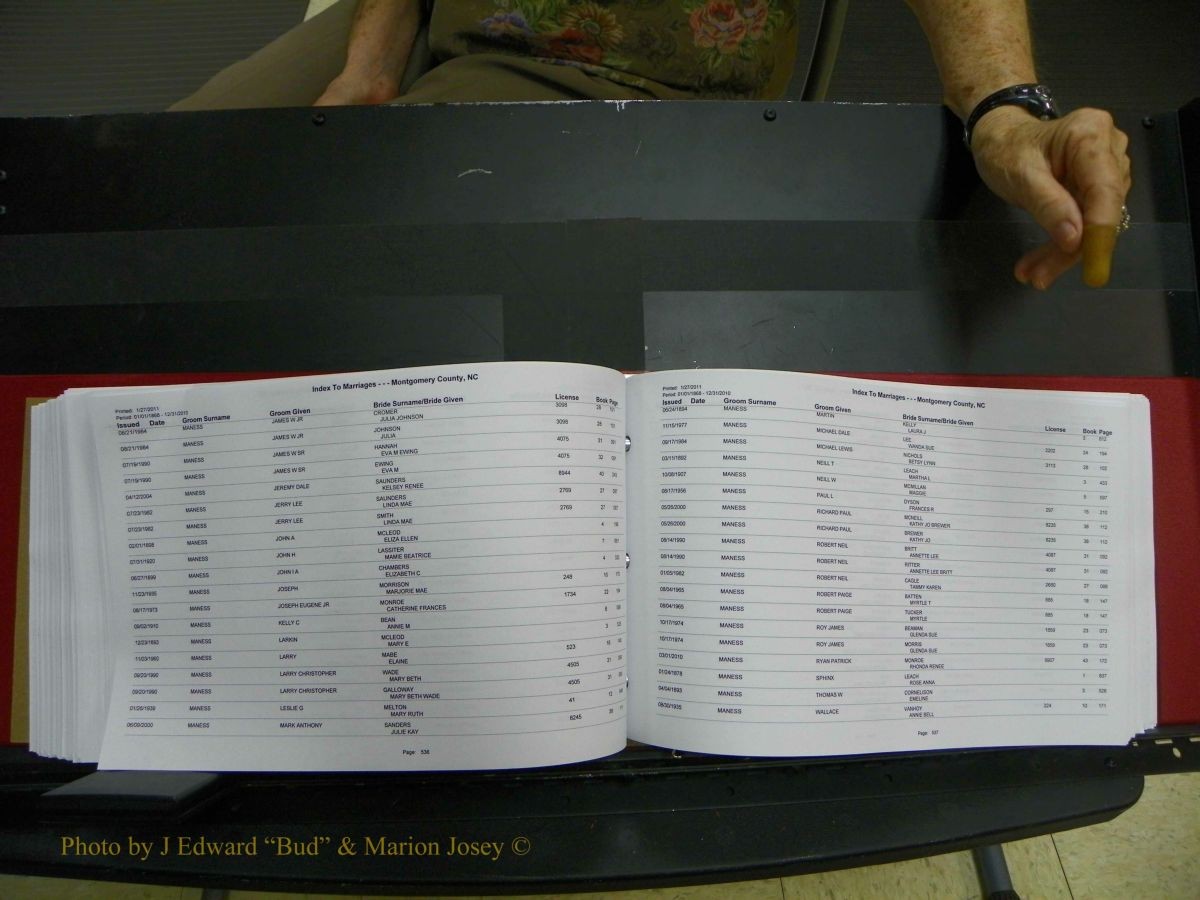 Index To Marriages - - - Montgomery County, NC
Printed: 1/27/2011
Period: 01/01/1868 - 12/31/2010
Issued Date Groom Surname Groom Given Bride Surname/Bride Given License Book Page
06/21/1984 MANESS JAMES W JR CROMER 3098 28
JULIA JOHNSON
06/21/1984 MANESS JAMES W JR JOHNSON 3098 28
JULIA
07/19/1990 MANESS JAMES W SR HANNAH 4075 31
EVA M EWING
07/19/1990 MANESS JAMES W SR EWING 4075 32
EVA M
04/12/2004 MANESS JEREMY DALE SAUNDERS 8944 40
KELSEY RENEE
07/23/1982 MANESS JERRY LEE SAUNDERS 2769 27
LINDA MAE
07/23/1982 MANESS JERRY LEE SMITH 2769 27
LINDA MAE
02/01/1898 MANESS JOHN A MCLEOD 4
ELIZA ELLEN
07/31/1920 MANESS JOHN H LASSITER 7
MAMIE BEATRICE
06/27/1899 MANESS JOHN I A CHAMBERS 4
ELIZABETH C
11/23/1935 MANESS JOSEPH MORRISON 248 10
MARJORIE MAE
08/17/1973 MANESS JOSEPH EUGENE JR MONROE 1734 22
CATHERINE FRANCES
09/02/1910 MANESS KELLY C BEAN 6
ANNIE M
12/23/1893 MANESS LARKIN MCLEOD 3
MARY E
11/23/1960 MANESS LARRY MABE 523 16
ELAINE
09/20/1990 MANESS LARRY CHRISTOPHER WADE 4505 31
MARY BETH
09/20/1990 MANESS LARRY CHRISTOPHER GALLOWAY 4505 31
MARY BETH WADE
01/26/1939 MANESS LESLIE G MELTON 41 12
MARY RUTH
06/09/2000 MANESS MARK ANTHONY SANDERS 8245 38
JULIE KAY
Page: 536
Index To Marriages - - - Montgomery County, NC
Printed: 1/27/2011
Period: 01/01/1868 - 12/31/2010
Issued Date Groom Surname Groom Given Bride Surname/Bride Given License Book Page
06/24/1894 MANESS MARTIN KELLY 3 512
LAURA J
11/15/1977 MANESS MICHAEL DALE LEE 2202 24 194
WANDA SUE
09/17/1984 MANESS MICHAEL LEWIS NICHOLS 3113 28 102
BETSY LYNN
03/11/1892 MANESS NEILL T LEACH 3 433
MARTHA L
10/08/1907 MANESS NEILL W MCMILLAN 5 597
MAGGIE
08/17/1956 MANESS PAUL L DYSON 297 15 210
FRANCES R
05/26/2000 MANESS RICHARD PAUL MCNEILL 8235 38 112
KATHY JO BREWER
05/26/2000 MANESS RICHARD PAUL BREWER 8235 38 112
KATHY JO
08/14/1990 MANESS ROBERT NEIL BRITT 4087 31 092
ANNETTE LEE
08/14/1990 MANESS ROBERT NEIL RITTER 4087 31 092
ANNETTE LEE BRITT
01/05/1982 MANESS ROBERT NEIL CAGLE 2650 27 088
TAMMY KAREN
08/04/1965 MANESS ROBERT PAIGE BATTEN 885 18 147
MYRTLE T
08/04/1965 MANESS ROBERT PAIGE TUCKER 885 18 147
MYRTLE
10/17/1974 MANESS ROY JAMES BEAMAN 1859 23 073
GLENDA SUE
10/17/1974 MANESS ROY JAMES MORRIS 1859 23 073
GLENDA SUE
03/01/2010 MANESS RYAN PATRICK MONROE 9907 43 172
RHONDA RENEE
01/24/1878 MANESS SPHINX LEACH 1 837
ROSE ANNA
04/04/1893 MANESS THOMAS W CORNELISON 3 526
EMELINE
08/30/1935 MANESS WALLACE VANHOY 224 10 171
ANNIE BELL
Page: 537
Photo by J Edward “Bud” & Marion Josey ©